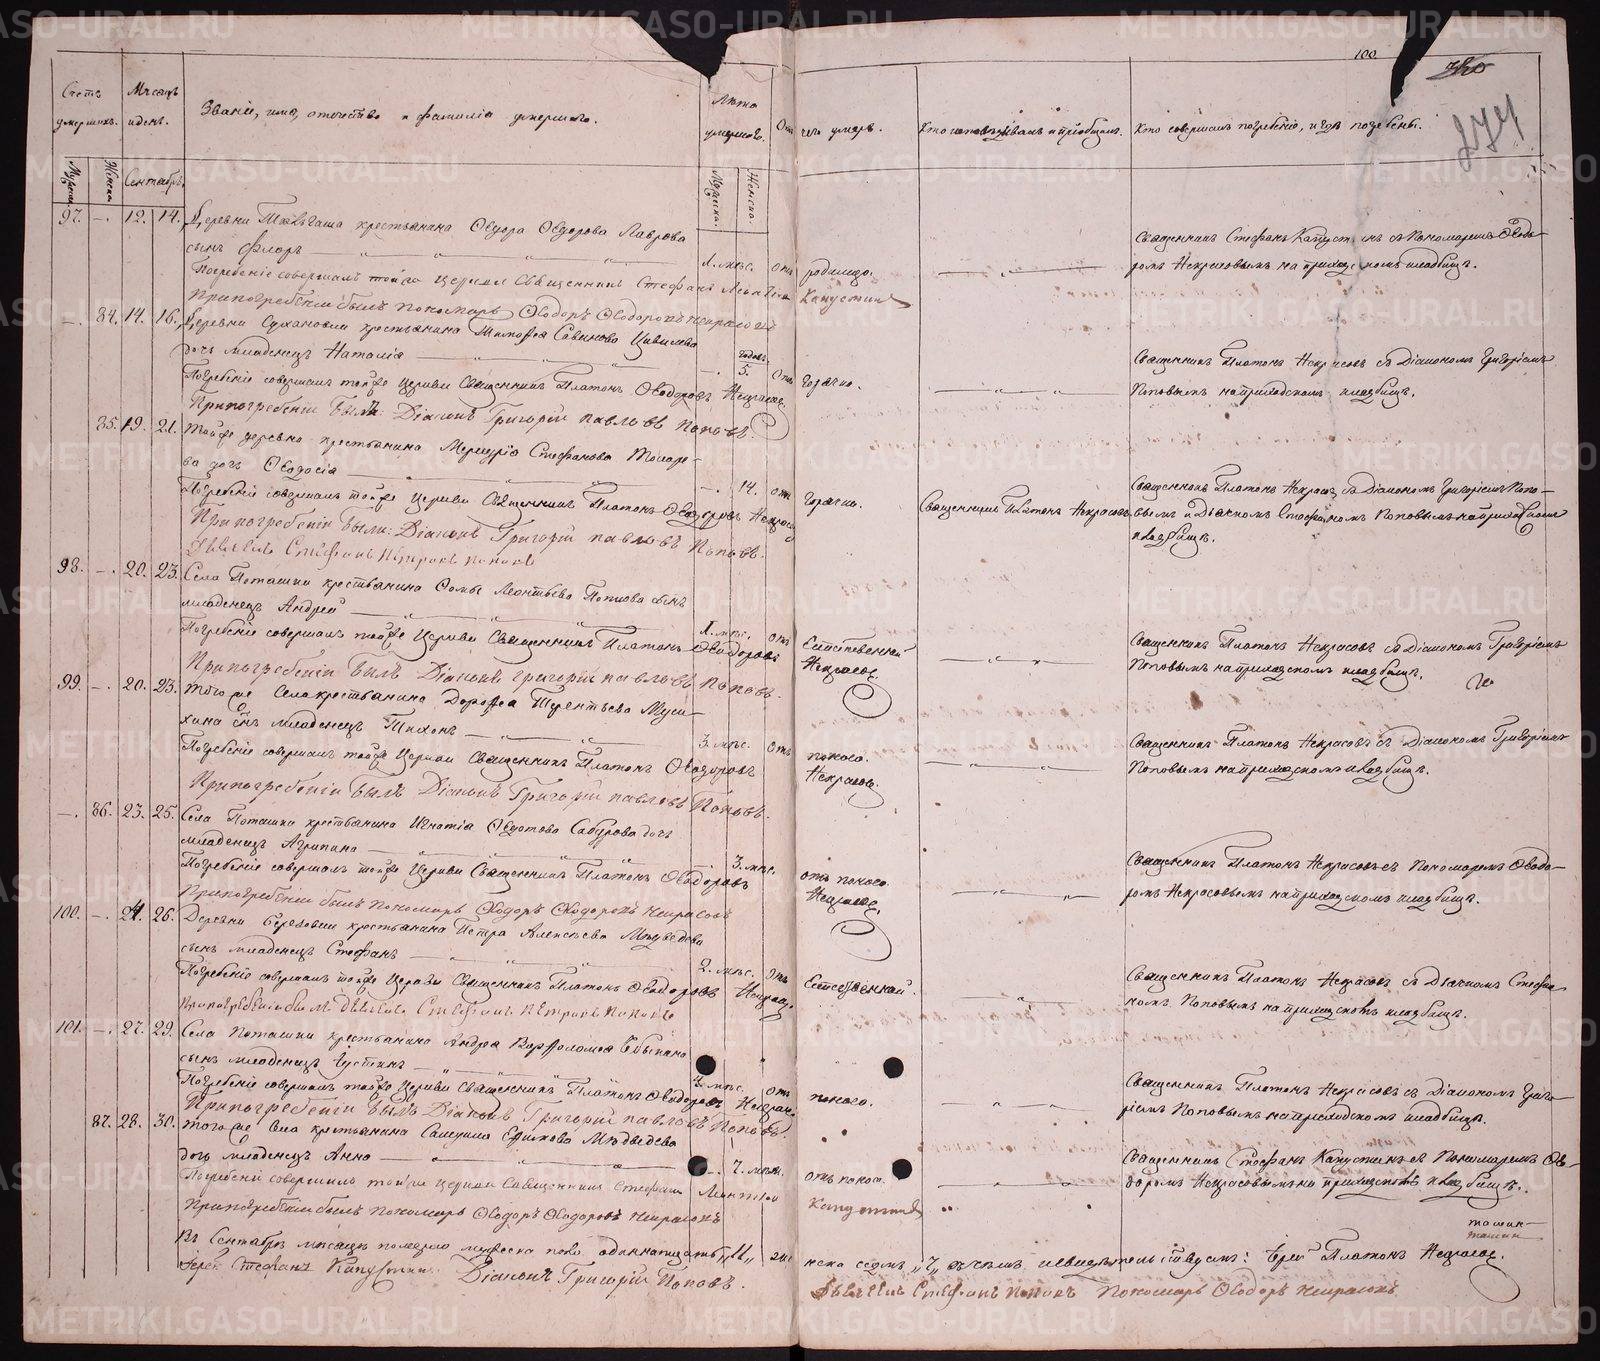 100
380
274
Счетъ умершихъ.
Мѣсяцъ и день.
Званіе, имя, отечество и фамилія умершаго.
Лѣта умершаго.
Отъ чего умеръ.
Кто исповѣдывалъ и пріобщалъ.
Кто совершалъ погребеніе, и гдѣ погребены.
Мужеска.
Женска.
Сентябрь.
Мужеска.
Женска.
97. —. 12. 14. Деревни крестьянина Ѳедора Ѳедорова Лаврова
сынъ Флоръ 1. мѣс. отъ родимцо.
Священникъ Стефанъ Капустинъ съ Пономаремъ Ѳеодо-
ромъ Некрасовымъ на приходскомъ кладбищѣ.
Погребеніе совершалъ той же церкви Священникъ Стефанъ Леонтіевъ Капустинъ
При погребеніи былъ Пономарь Ѳеодоръ Ѳеодоровъ Некрасовъ
—. 84. 14. 16. Деревни крестьянина Тимофея Савинова
дочь младенецъ Наталія годовъ 5. Отъ горячки.
Священникъ Платонъ Некрасовъ съ Діакономъ Григоріемъ
Поповымъ на приходскомъ кладбищѣ.
Погребеніе совершалъ той же Церкви Священникъ Платонъ Ѳеодоровъ Некрасовъ
При погребеніи былъ: Діаконъ Григорій Павловъ Поповъ.
85. 19. 21. Той же деревни крестьянина Меркурія Стефанова Токаре-
ва дочь Ѳеодосія —. 14. отъ горячки.
Священникъ Платонъ Некрасовъ
Священникъ Платонъ Некрасовъ съ Діакономъ Григоріемъ Попо-
вымъ и Дьячкомъ Стефаномъ Поповымъ на приходскомъ
кладбищѣ.
Погребеніе совершалъ той же Церкви Священникъ Платонъ Ѳеодоровъ Некрасовъ
При погребеніи были: Діаконъ Григорій Павловъ Поповъ.
Дьячекъ Стефанъ Петровъ Поповъ
98. —. 20. 23. Села Поташки крестьянина Фомы Леонтьева Попкова сынъ
младенецъ Андрей 1. мѣс. отъ Естественной
Священникъ Платонъ Некрасовъ съ Діакономъ Григоріемъ
Поповымъ на приходскомъ кладбищѣ.
Погребеніе совершалъ той же Церкви Священникъ Платонъ Ѳеодоровъ Некрасовъ
При погребеніи былъ Діаконъ Григорій Павловъ Поповъ.
99. —. 20. 23. Того же Села крестьянина Дорофея Терентьева Муси-
хина сынъ младенецъ Тихонъ 3. мѣс. отъ поноса.
Священникъ Платонъ Некрасовъ съ Діакономъ Григоріемъ
Поповымъ на приходскомъ кладбищѣ.
Погребеніе совершалъ той же Церкви Священникъ Платонъ Ѳеодоровъ Некрасовъ.
При погребеніи былъ Діаконъ Григорій Павловъ Поповъ.
—. 86. 23. 25. Села Поташки крестьянина Игнатія Ѳедотова Сабурова дочь
младенецъ Агрипина 3. мѣс. отъ поноса.
Священникъ Платонъ Некрасовъ съ Пономаремъ Ѳеодо-
ромъ Некрасовымъ на приходскомъ кладбищѣ.
Погребеніе совершалъ той же Церкви Священникъ Платонъ Ѳеодоровъ Некрасовъ.
При погребеніи былъ Пономарь Ѳеодоръ Ѳеодоровъ Некрасовъ
100. —. 24. 26. Деревни Березовки крестьянина Петра Алексѣева Медведева
сынъ младенецъ Стефанъ 2. мѣс. отъ Естественной.
Священникъ Платонъ Некрасовъ съ Дьячкомъ Стефа-
номъ Поповымъ на приходскомъ кладбищѣ.
Погребеніе совершалъ той же Церкви Священникъ Платонъ Ѳеодоровъ Некрасовъ
При погребеніи былъ Дьячекъ Стефанъ Петровъ Поповъ
101. —. 27. 29. Села Поташки крестьянина Андрея Варфоломея
сынъ младенецъ Іустинъ мѣс. отъ поноса.
Священникъ Платонъ Некрасовъ съ Діакономъ Григо-
ріемъ Поповымъ на приходскомъ кладбищѣ.
Погребеніе совершалъ той же Церкви Священникъ Платонъ Ѳеодоровъ Некрасовъ
При погребеніи былъ Діаконъ Григорій Павловъ Поповъ.
87. 28. 30. Того же Села крестьянина Самуила Ефимова Медведева
дочь младенецъ Анна —. 7. мѣс. отъ поноса.
Священникъ Стефанъ Капустинъ съ Пономаремъ Ѳе-
одоромъ Некрасовымъ на приходскомъ кладбищѣ.
Погребеніе совершалъ той же церкви Священникъ Стефанъ Леонтіевъ Капустинъ
При погребеніи былъ Пономарь Ѳеодоръ Ѳеодоровъ Некрасовъ
Въ Сентябрѣ мѣсяцѣ померло мужеска пола одиннатцать „11„ женска седмъ „7„ въ чемъ и свидѣтельствуемъ: Іерей Платонъ Некрасовъ.
Іерей Стефанъ Капустинъ. Діаконъ Григорій Поповъ. Дьячекъ Стефанъ Поповъ Пономарь Ѳеодоръ Некрасовъ
METRIKI.GASO-URAL.RU